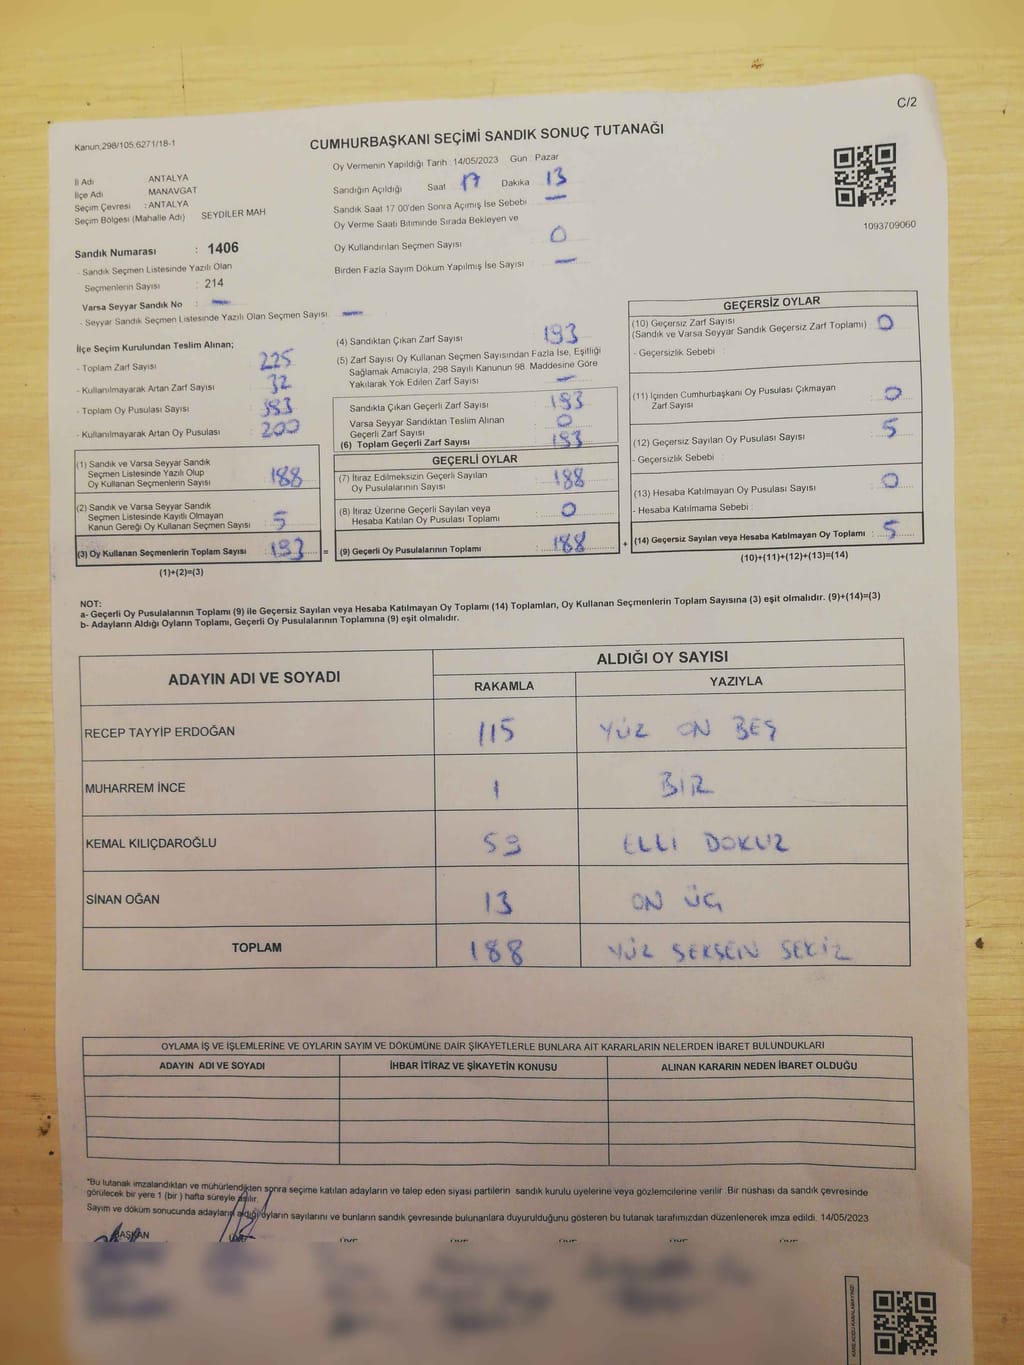 C/2
Kanun,298/105,6271/18-1
CUMHURBAŞKANI SEÇİMİ SANDIK SONUÇ TUTANAĞI
İl Adı ANTALYA
İlçe Adı MANAVGAT
Seçim Çevresi : ANTALYA
Seçim Bölgesi (Mahalle Adı) SEYDİLER MAH
Sandık Numarası : 1406
- Sandık Seçmen Listesinde Yazılı Olan
Seçmenlerin Sayısı : 214
Varsa Seyyar Sandık No : —
- Seyyar Sandık Seçmen Listesinde Yazılı Olan Seçmen Sayısı —
Oy Vermenin Yapıldığı Tarih : 14/05/2023 Gün : Pazar
Sandığın Açıldığı Saat 17 Dakika 13
Sandık Saat 17 00'den Sonra Açımış İse Sebebi : —
Oy Verme Saati Bitiminde Sırada Bekleyen ve
Oy Kullandırılan Seçmen Sayısı : 0
Birden Fazla Sayım Döküm Yapılmış İse Sayısı : —
1093709060
İlçe Seçim Kurulundan Teslim Alınan;
- Toplam Zarf Sayısı : 225
- Kullanılmayarak Artan Zarf Sayısı : 32
- Toplam Oy Pusulası Sayısı : 393
- Kullanılmayarak Artan Oy Pusulası : 200
(1) Sandık ve Varsa Seyyar Sandık
Seçmen Listesinde Yazılı Olup
Oy Kullanan Seçmenlerin Sayısı : 188
(2) Sandık ve Varsa Seyyar Sandık
Seçmen Listesinde Kayıtlı Olmayan
Kanun Gereği Oy Kullanan Seçmen Sayısı : 5
(3) Oy Kullanan Seçmenlerin Toplam Sayısı : 193 =
(1)+(2)=(3)
(4) Sandıktan Çıkan Zarf Sayısı : 193
(5) Zarf Sayısı Oy Kullanan Seçmen Sayısından Fazla İse, Eşitliği
Sağlamak Amacıyla, 298 Sayılı Kanunun 98. Maddesine Göre
Yakılarak Yok Edilen Zarf Sayısı : —
Sandıkta Çıkan Geçerli Zarf Sayısı : 193
Varsa Seyyar Sandıktan Teslim Alınan
Geçerli Zarf Sayısı : 0
(6) Toplam Geçerli Zarf Sayısı : 193
GEÇERLİ OYLAR
(7) İtiraz Edilmeksizin Geçerli Sayılan
Oy Pusulalarının Sayısı : 188
(8) İtiraz Üzerine Geçerli Sayılan veya
Hesaba Katılan Oy Pusulası Toplamı : 0
(9) Geçerli Oy Pusulalarının Toplamı : 188 +
GEÇERSİZ OYLAR
(10) Geçersiz Zarf Sayısı
(Sandık ve Varsa Seyyar Sandık Geçersiz Zarf Toplamı) : 0
- Geçersizlik Sebebi :
(11) İçinden Cumhurbaşkanı Oy Pusulası Çıkmayan
Zarf Sayısı : 0
(12) Geçersiz Sayılan Oy Pusulası Sayısı : 5
- Geçersizlik Sebebi :
(13) Hesaba Katılmayan Oy Pusulası Sayısı : 0
- Hesaba Katılmama Sebebi :
(14) Geçersiz Sayılan veya Hesaba Katılmayan Oy Toplamı : 5
(10)+(11)+(12)+(13)=(14)
NOT:
a- Geçerli Oy Pusulalarının Toplamı (9) ile Geçersiz Sayılan veya Hesaba Katılmayan Oy Toplamı (14) Toplamları, Oy Kullanan Seçmenlerin Toplam Sayısına (3) eşit olmalıdır. (9)+(14)=(3)
b- Adayların Aldığı Oyların Toplamı, Geçerli Oy Pusulalarının Toplamına (9) eşit olmalıdır.
ADAYIN ADI VE SOYADI ALDIĞI OY SAYISI
RAKAMLA YAZIYLA
RECEP TAYYİP ERDOĞAN 115 YÜZ ON BEŞ
MUHARREM İNCE 1 BİR
KEMAL KILIÇDAROĞLU 59 ELLİ DOKUZ
SİNAN OĞAN 13 ON ÜÇ
TOPLAM 188 YÜZ SEKSEN SEKİZ
OYLAMA İŞ VE İŞLEMLERİNE VE OYLARIN SAYIM VE DÖKÜMÜNE DAİR ŞİKAYETLERLE BUNLARA AİT KARARLARIN NELERDEN İBARET BULUNDUKLARI
ADAYIN ADI VE SOYADI İHBAR İTİRAZ VE ŞİKAYETİN KONUSU ALINAN KARARIN NEDEN İBARET OLDUĞU
"Bu tutanak imzalandıktan ve mühürlendikten sonra seçime katılan adayların ve talep eden siyasi partilerin sandık kurulu üyelerine veya gözlemcilerine verilir. Bir nüshası da sandık çevresinde
görülecek bir yere 1 (bir) hafta süreyle asılır.
Sayım ve döküm sonucunda adayların aldığı oyların sayılarını ve bunların sandık çevresinde bulunanlara duyurulduğunu gösteren bu tutanak tarafımızdan düzenlenerek imza edildi. 14/05/2023
BAŞKAN